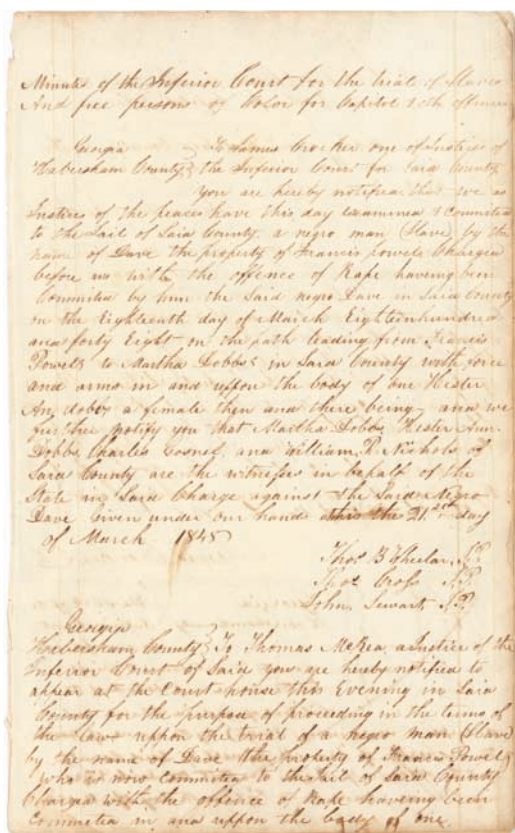 Minutes of the Inferior Court for the trial of Slaves
And free persons of Color for Capitol &th offences
Georgia } To James Crocker one of Justices of
Habersham County } the Inferior Court for Said County
You are hereby notified that we as
Justices of the peace have this day examined & Committed
to the Jail of Said County a negro man (Slave) by the
name of Dave the property of Francis Powels Charged
before us with the offence of Rape having been
Committed by him the Said negro Dave in Said County
on the Eighteenth day of March Eighteenhundred
and forty Eight on the path leading from Francis
Powels to Martha Dobbs in Said County with force
and arms in and uppon the body of one Hester
An, dobbs a female then and there being, and we
further notify you that Martha Dobbs, Hester Ann
Dobbs, Charles and William R Nichols of
Said County are the witnesses in behalf of the
State in Said Charge against the Said Negro
Dave Given under our hand this the 21st day
of March 1848
Thos B Wheelar J.P.
Thos Cross J.P.
John Stewart J.P.
Georgia
Habersham County } To Thomas McRea, a Justice of the
Inferior Court of Said you are hereby notified to
appear at the Court house this Evening in Said
County for the purpose of proceeding in the terms of
the law uppon the trial of a negro man (Slave
by the name of Dave the property of Francis Powels
who is now Committed to the Jail of Said County
Charged with the offence of Rape haveing been
Committed in and uppon the body of one